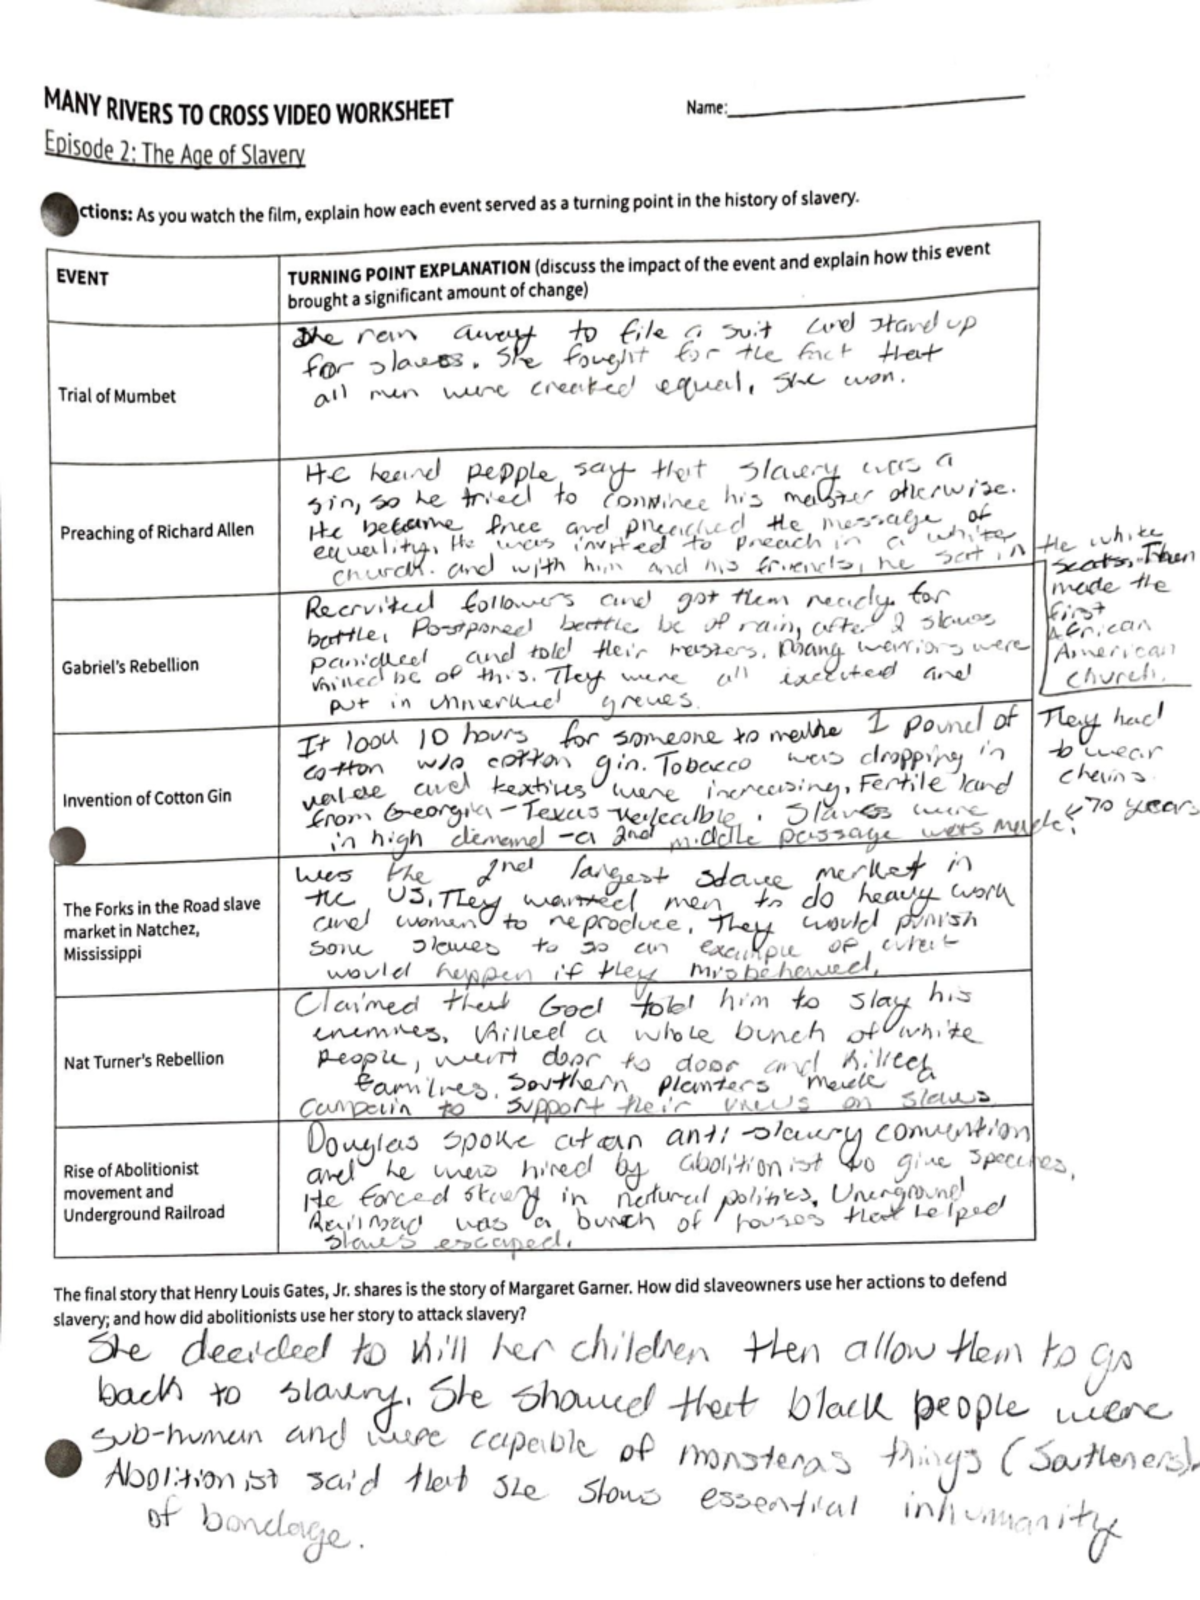 MANY RIVERS TO CROSS VIDEO WORKSHEET
Name:
Episode 2: The Age of Slavery
ctions: As you watch the film, explain how each event served as a turning point in the history of slavery.
EVENT
TURNING POINT EXPLANATION (discuss the impact of the event and explain how this event
brought a significant amount of change)
Trial of Mumbet
She ran away to file a suit and stand up
for slaves. She fought for the fact that
all men were created equal. She won.
Preaching of Richard Allen
He heard people say that slavery was a
sin, so he tried to convince his master otherwise.
He became free and preached the message of
equality. He was invited to preach in a white
church. and with him and his friends, he sat in
the white
seats. Then
made the
first
African
American
church.
Gabriel's Rebellion
Recruited followers and got them ready for
battle, Postponed battle bc of rain, after 2 slaves
and told their masters. Many warriors were
killed bc of this. They were all and
put in graves.
Invention of Cotton Gin
It 10 hours for someone to make 1 pound of
cotton w/o cotton gin. Tobacco was dropping in
value and were increasing. Fertile land
from Georgia - Texas . Slaves were
in high demand - a 2nd middle passage was made.
They had
to wear
chains.
70 years
The Forks in the Road slave
market in Natchez,
Mississippi
Was the 2nd largest slave market in
the US. They wanted men to do heavy work
and women to reproduce. They would punish
some slaves to so an example of what
would happen if they misbehaved.
Nat Turner's Rebellion
Claimed that God told him to slay his
enemies. Killed a whole bunch of white
people, went door to door and killed
families. Southern planters made a
to support their views on slaves
Rise of Abolitionist
movement and
Underground Railroad
Douglas spoke at an anti-slavery convention
and he was hired by abolitionist to give speeches.
He forced in politics.
Railroad was a bunch of houses that helped
slaves escaped.
The final story that Henry Louis Gates, Jr. shares is the story of Margaret Garner. How did slaveowners use her actions to defend
slavery; and how did abolitionists use her story to attack slavery?
She decided to kill her children then allow them to go
back to slavery. She showed that black people were
sub-human and were capable of monsteras things (Southeners).
Abolitionist said that she shows essential inhumanity
of bondage.